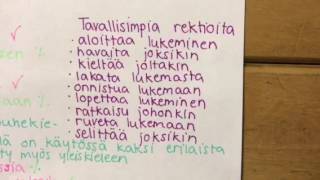 Tavallisimpia rektioita
• aloittaa lukeminen
• havaita joksikin
• kieltää joltakin
• lakata lukemasta
• onnistua lukemaan
• lopettaa lukeminen
• ratkaisu johonkin
• ruveta lukemaan
• selittää joksikin
on käytössä kaksi erilaista
myös yleiskieleen